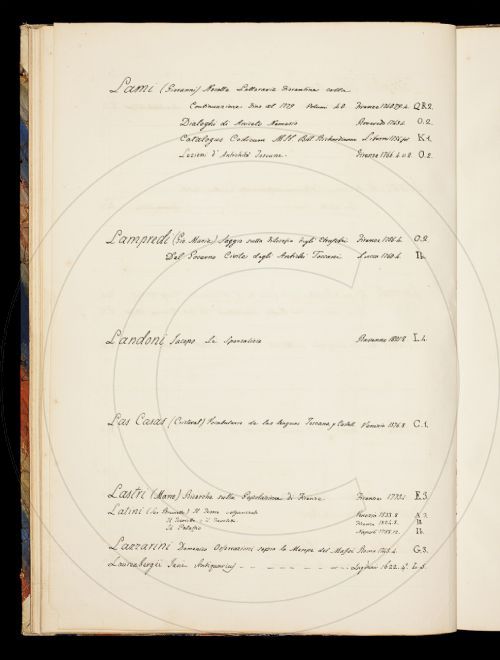 Lami (Giovanni) Novelle Letterarie Fiorentine colla
Continuazione fino al 1779 Volumi 40. Firenze 1740.79.4. Q.R.2.
Dialoghi di Aniceto Nemesio Roveredo 1767.4. O.2.
Catalogus Codicum MSS. Bibl. Riccardianae Liburni 1756.fol K.1.
Lezioni d'Antichità Toscane. Firenze 1766.4. O.2.
Lampredi (Gio. Maria) Saggio sulla Filosofia degli Etruschi Firenze 1756.4. O.2.
Del Governo Civile degli Antichi Toscani Lucca 1760.4. Ib.
Landoni Jacopo Le Sponsalizie Ravenna 8 I.4.
Las Casas (Cristoval) Vocabulario de las lenguas Toscana y Castell. Venezia 1576.8 C.1.
Lastri (Marco) Ricerche sulla Popolazione di Firenze Firenze 1775.4 E.3.
Latini (Ser Brunetto) Il Tesoro Venezia 1533.8 A.3.
Il Tesoretto e il Favoletto Firenze 1824.8. Ib
Il Pataffio Napoli 1788.12. Ib.
Lazzarini Domenico Osservazioni sopra la Merope del Maffei Roma 1743.4. G.3.
Laurenbergii Jani Antiquarius Lugduni 1622.4.° L.5.